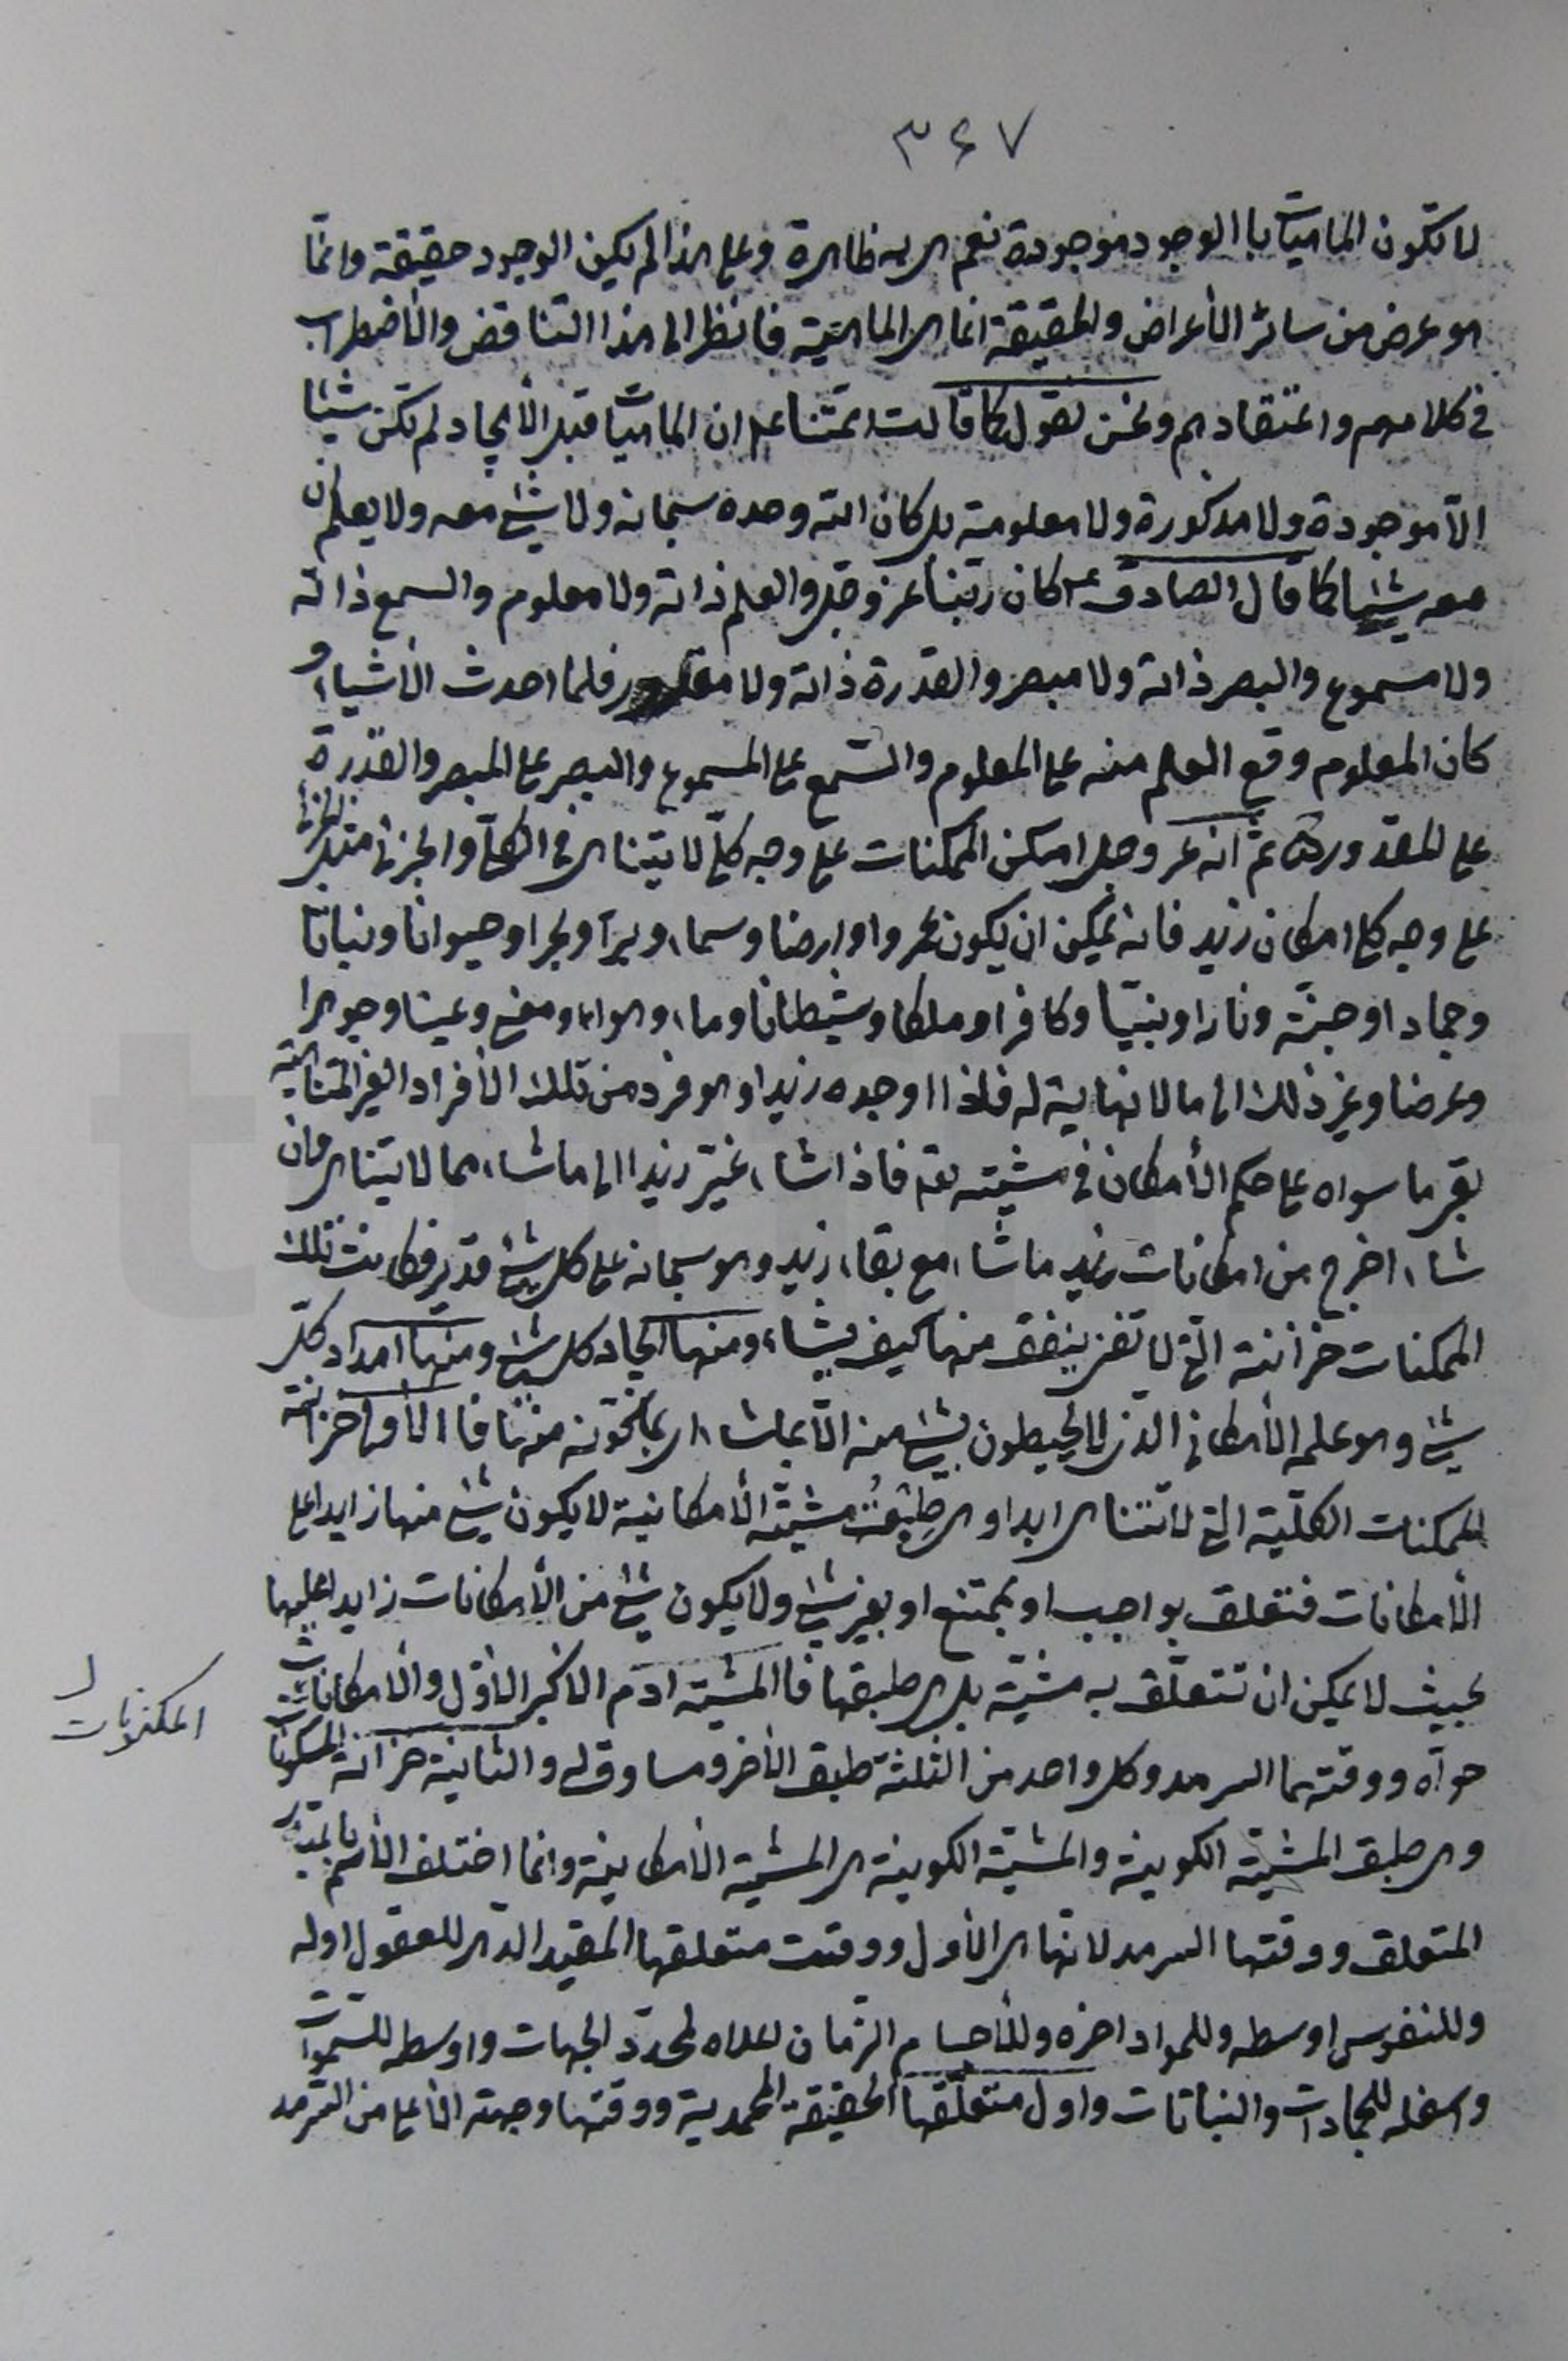 ۳۶۷
لا تكون الماهيات بالوجود موجودة نعم هي به ظاهرة وعلى هذا لم يكن الوجود حقيقة وانما
هو عرض من سائر الأعراض والحقيقة انما هي الماهية فانظر الى هذا التناقض والأضطراب
في كلامهم واعتقادهم ونحن نقول كما قالت ائمتنا ع ان الماهيات قبل الأيجاد لم تكن شيئا
الا موجودة ولا مذكورة ولا معلومة بل كان الله وحده سبحانه ولا شيء معه ولا يعلم ان
معه شيئا كما قال الصادق ع كان ربنا عز وجل والعلم ذاته ولا معلوم والسمع ذاته
ولا مسموع والبصر ذاته ولا مبصر والقدرة ذاته ولا مقدور فلما احدث الأشياء و
كان المعلوم وقع العلم منه على المعلوم والسمع على المسموع والبصر على المبصر والقدرة
على المقدور ثم انه عز وجل امكن الممكنات على وجه كلي لا يتناهى في الكلي والجزئي مثل الجزئي
على وجه كلي امكان زيد فانه يمكن ان يكون عمروا وارضا وسماء وبرا وبحرا وحيوانا ونباتا
وجمادا وجنة ونارا ونبيا وكافرا وملكا وشيطانا وماء وهواء ومعنى وعينا وجوهرا
وعرضا وغير ذلك الى ما لا نهاية له فلذا اوجده زيدا وهو فرد من تلك الأفراد الغير المتناهية
بقي ما سواه على حكم الأمكان في مشيته تعم فاذا شاء غير زيدا الى ما شاء مما لا يتناهى وان
شاء اخرج من امكانات زيد ما شاء مع بقاء زيد وهو سبحانه على كل شيء قدير فكانت تلك
الممكنات خزائنه التي لا تفنى ينفق منها كيف يشاء ومنها ايجاد كل شيء ومنها امداد كل
شيء وهو علمه الأمكاني الذي لا يحيطون بشيء منه الا بما شاء اي بما يكونه منها فالأولى خزانة
الممكنات الكلية التي لا تتناهى ابدا وهي طبق مشيته الأمكانية لا يكون شيء منها زايدا على
الأمكانات فتعلق بواجب او بممتنع او بغير شيء ولا يكون شيء من الأمكانات زايدا عليها
بحيث لا يمكن ان تتعلق به مشية بل هي طبقها فالمشية ادم الاكبر الأول والأمكانات
حواه ووقتهما السرمد وكل واحد من الثلثة طبق الأخر ومساوق له والثانية خزانة المكونات
المكنونات ل
وهي طبق المشية الكونية والمشية الكونية هي المشية الأمكانية وانما اختلف الأسم باعتبار
المتعلق ووقتها السرمد لانها هي الأول ووقت متعلقها المقيد الدهر للعقول اوله
وللنفوس اوسطه وللمواد اخره وللأجسام الزمان اعلاه لمحدد الجهات واوسطه للسموات
واسفله للجمادات والنباتات واول متعلقها الحقيقة المحمدية ووقتها وجهته الأعلى من السرمد